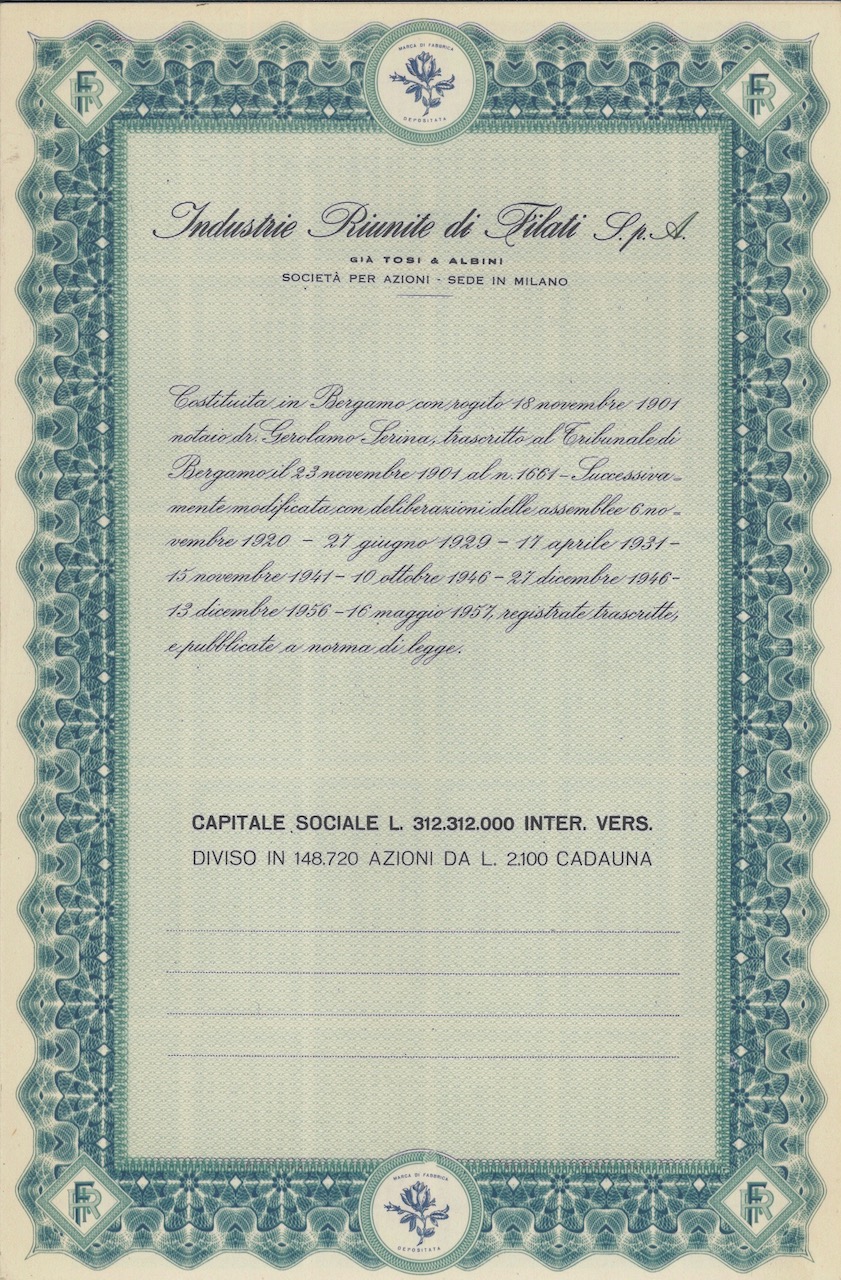 MARCA DI FABBRICA
DEPOSITATA
Industrie Riunite di Filati S.p.A.
GIÀ TOSI & ALBINI
SOCIETÀ PER AZIONI - SEDE IN MILANO
Costituita in Bergamo con rogito 18 novembre 1901
notaio dr. Gerolamo Serina, trascritto al Tribunale di
Bergamo il 23 novembre 1901 al n. 1661 - Successiva=
mente modificata con deliberazioni delle assemblee 6 no=
vembre 1920 - 27 giugno 1929 - 17 aprile 1931 -
15 novembre 1941 - 10 ottobre 1946 - 27 dicembre 1946 -
13 dicembre 1956 - 16 maggio 1957, registrate trascritte,
e pubblicate a norma di legge.
CAPITALE SOCIALE L. 312.312.000 INTER. VERS.
DIVISO IN 148.720 AZIONI DA L. 2.100 CADAUNA
MARCA DI FABBRICA
DEPOSITATA